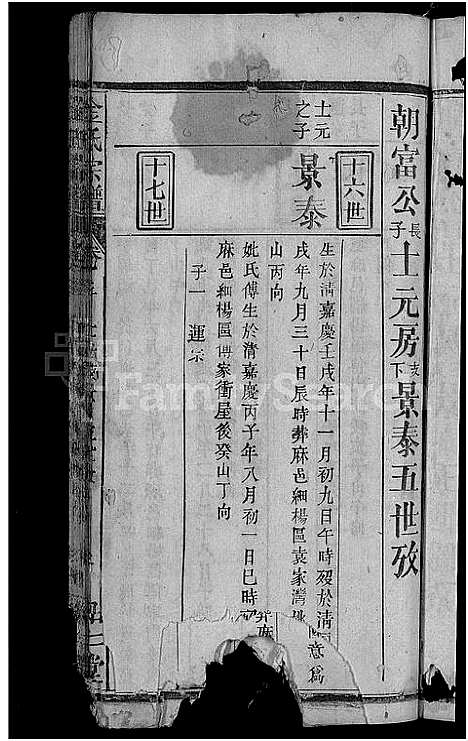 朝富公長子士元房支下景泰五世攷
十六世
士元之子
景泰
生於清嘉慶壬戌年十一月初九日午時歿於清
戌年九月三十日辰時葬麻邑細楊區袁家灣 意為
山丙向
妣氏傅生於清嘉慶丙子年八月初一日巳時
麻邑細楊區傅家衝屋後癸山丁向
子一 運宗
十七世
金氏宗譜
FamilySearch